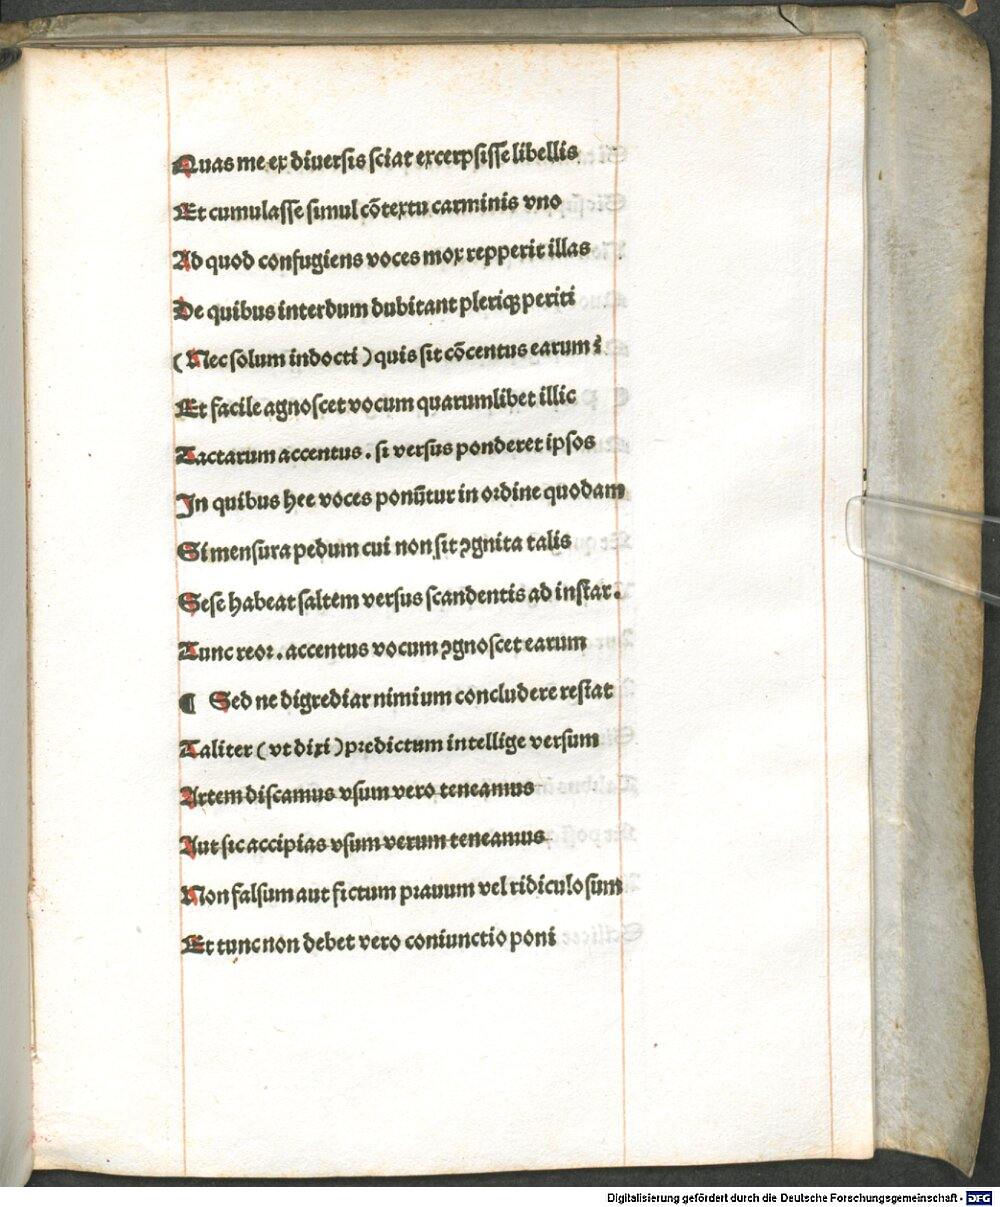 Quas me ex diuersis sciat excerpsisse libellis
Et cumulasse simul cõtextu carminis vno
Ad quod confugiens voces mox repperit illas
De quibus interdum dubitant pleriqꝫ periti
(Nec solum indocti) quis sit cõcentus earum?
Et facile agnoscet vocum quarumlibet illic
Tactarum accentus. si versus ponderet ipsos
In quibus hee voces ponũtur in ordine quodam
Si mensura pedum cui non sit ꝯgnita talis
Sese habeat saltem versus scandentis ad instar.
Tunc reor. accentus vocum ꝯgnoscet earum
¶ Sed ne digrediar nimium concludere restat
Taliter (vt dixi) predictum intellige versum
Artem discamus vsum vero teneamus
Aut sic accipias vsum verum teneamus
Non falsum aut fictum prauum vel ridiculosum
Et tunc non debet vero coniunctio poni
Digitalisierung gefördert durch die Deutsche Forschungsgemeinschaft - DFG